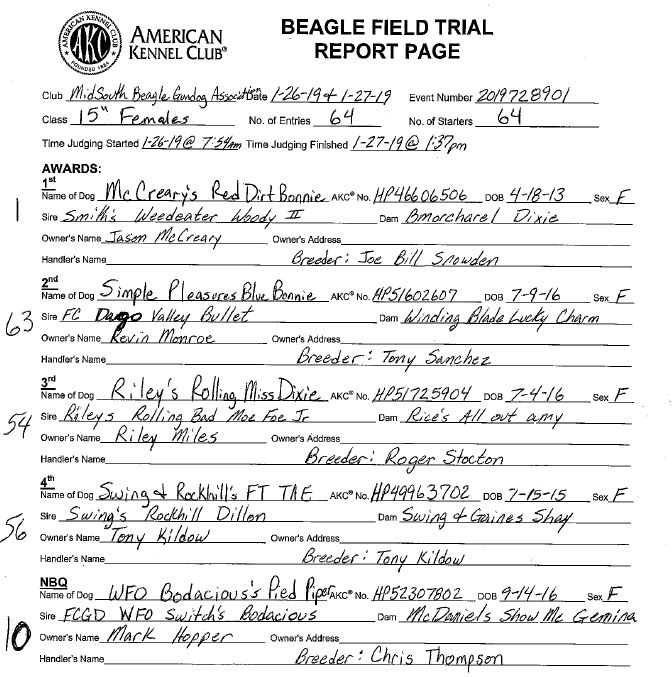 AMERICAN KENNEL CLUB®
AKC
AMERICAN KENNEL CLUB
FOUNDED 1884
BEAGLE FIELD TRIAL
REPORT PAGE
Club MidSouth Beagle Gundog Association Date 1-26-19 & 1-27-19 Event Number 2019728901
Class 15" Females No. of Entries 64 No. of Starters 64
Time Judging Started 1-26-19 @ 7:54am Time Judging Finished 1-27-19 @ 1:37pm
AWARDS:
1st
Name of Dog McCreary's Red Dirt Bonnie AKC® No. HP46606506 DOB 4-18-13 Sex F
1 Sire Smith's Weedeater Woody II Dam Bmorcharel Dixie
Owner's Name Jason McCreary Owner's Address
Handler's Name Breeder: Joe Bill Snowden
2nd
Name of Dog Simple Pleasures Blue Bonnie AKC® No. HP51602607 DOB 7-9-16 Sex F
63 Sire FC Dago Valley Bullet Dam Winding Blade Lucky Charm
Owner's Name Kevin Monroe Owner's Address
Handler's Name Breeder: Tony Sanchez
3rd
Name of Dog Riley's Rolling Miss Dixie AKC® No. HP51725904 DOB 7-4-16 Sex F
54 Sire Rileys Rolling Bad Moe Foe Jr Dam Rice's All out amy
Owner's Name Riley Miles Owner's Address
Handler's Name Breeder: Roger Stocton
4th
Name of Dog Swing & Rockhill's FT TAE AKC® No. HP49963702 DOB 7-15-15 Sex F
56 Sire Swing's Rockhill Dillon Dam Swing & Gaines Shay
Owner's Name Tony Kildow Owner's Address
Handler's Name Breeder: Tony Kildow
NBQ
Name of Dog WFO Bodacious's Pied Piper AKC® No. HP52307802 DOB 9-14-16 Sex F
10 Sire FCGD WFO Switch's Bodacious Dam McDaniels Show Me Gemina
Owner's Name Mark Hopper Owner's Address
Handler's Name Breeder: Chris Thompson